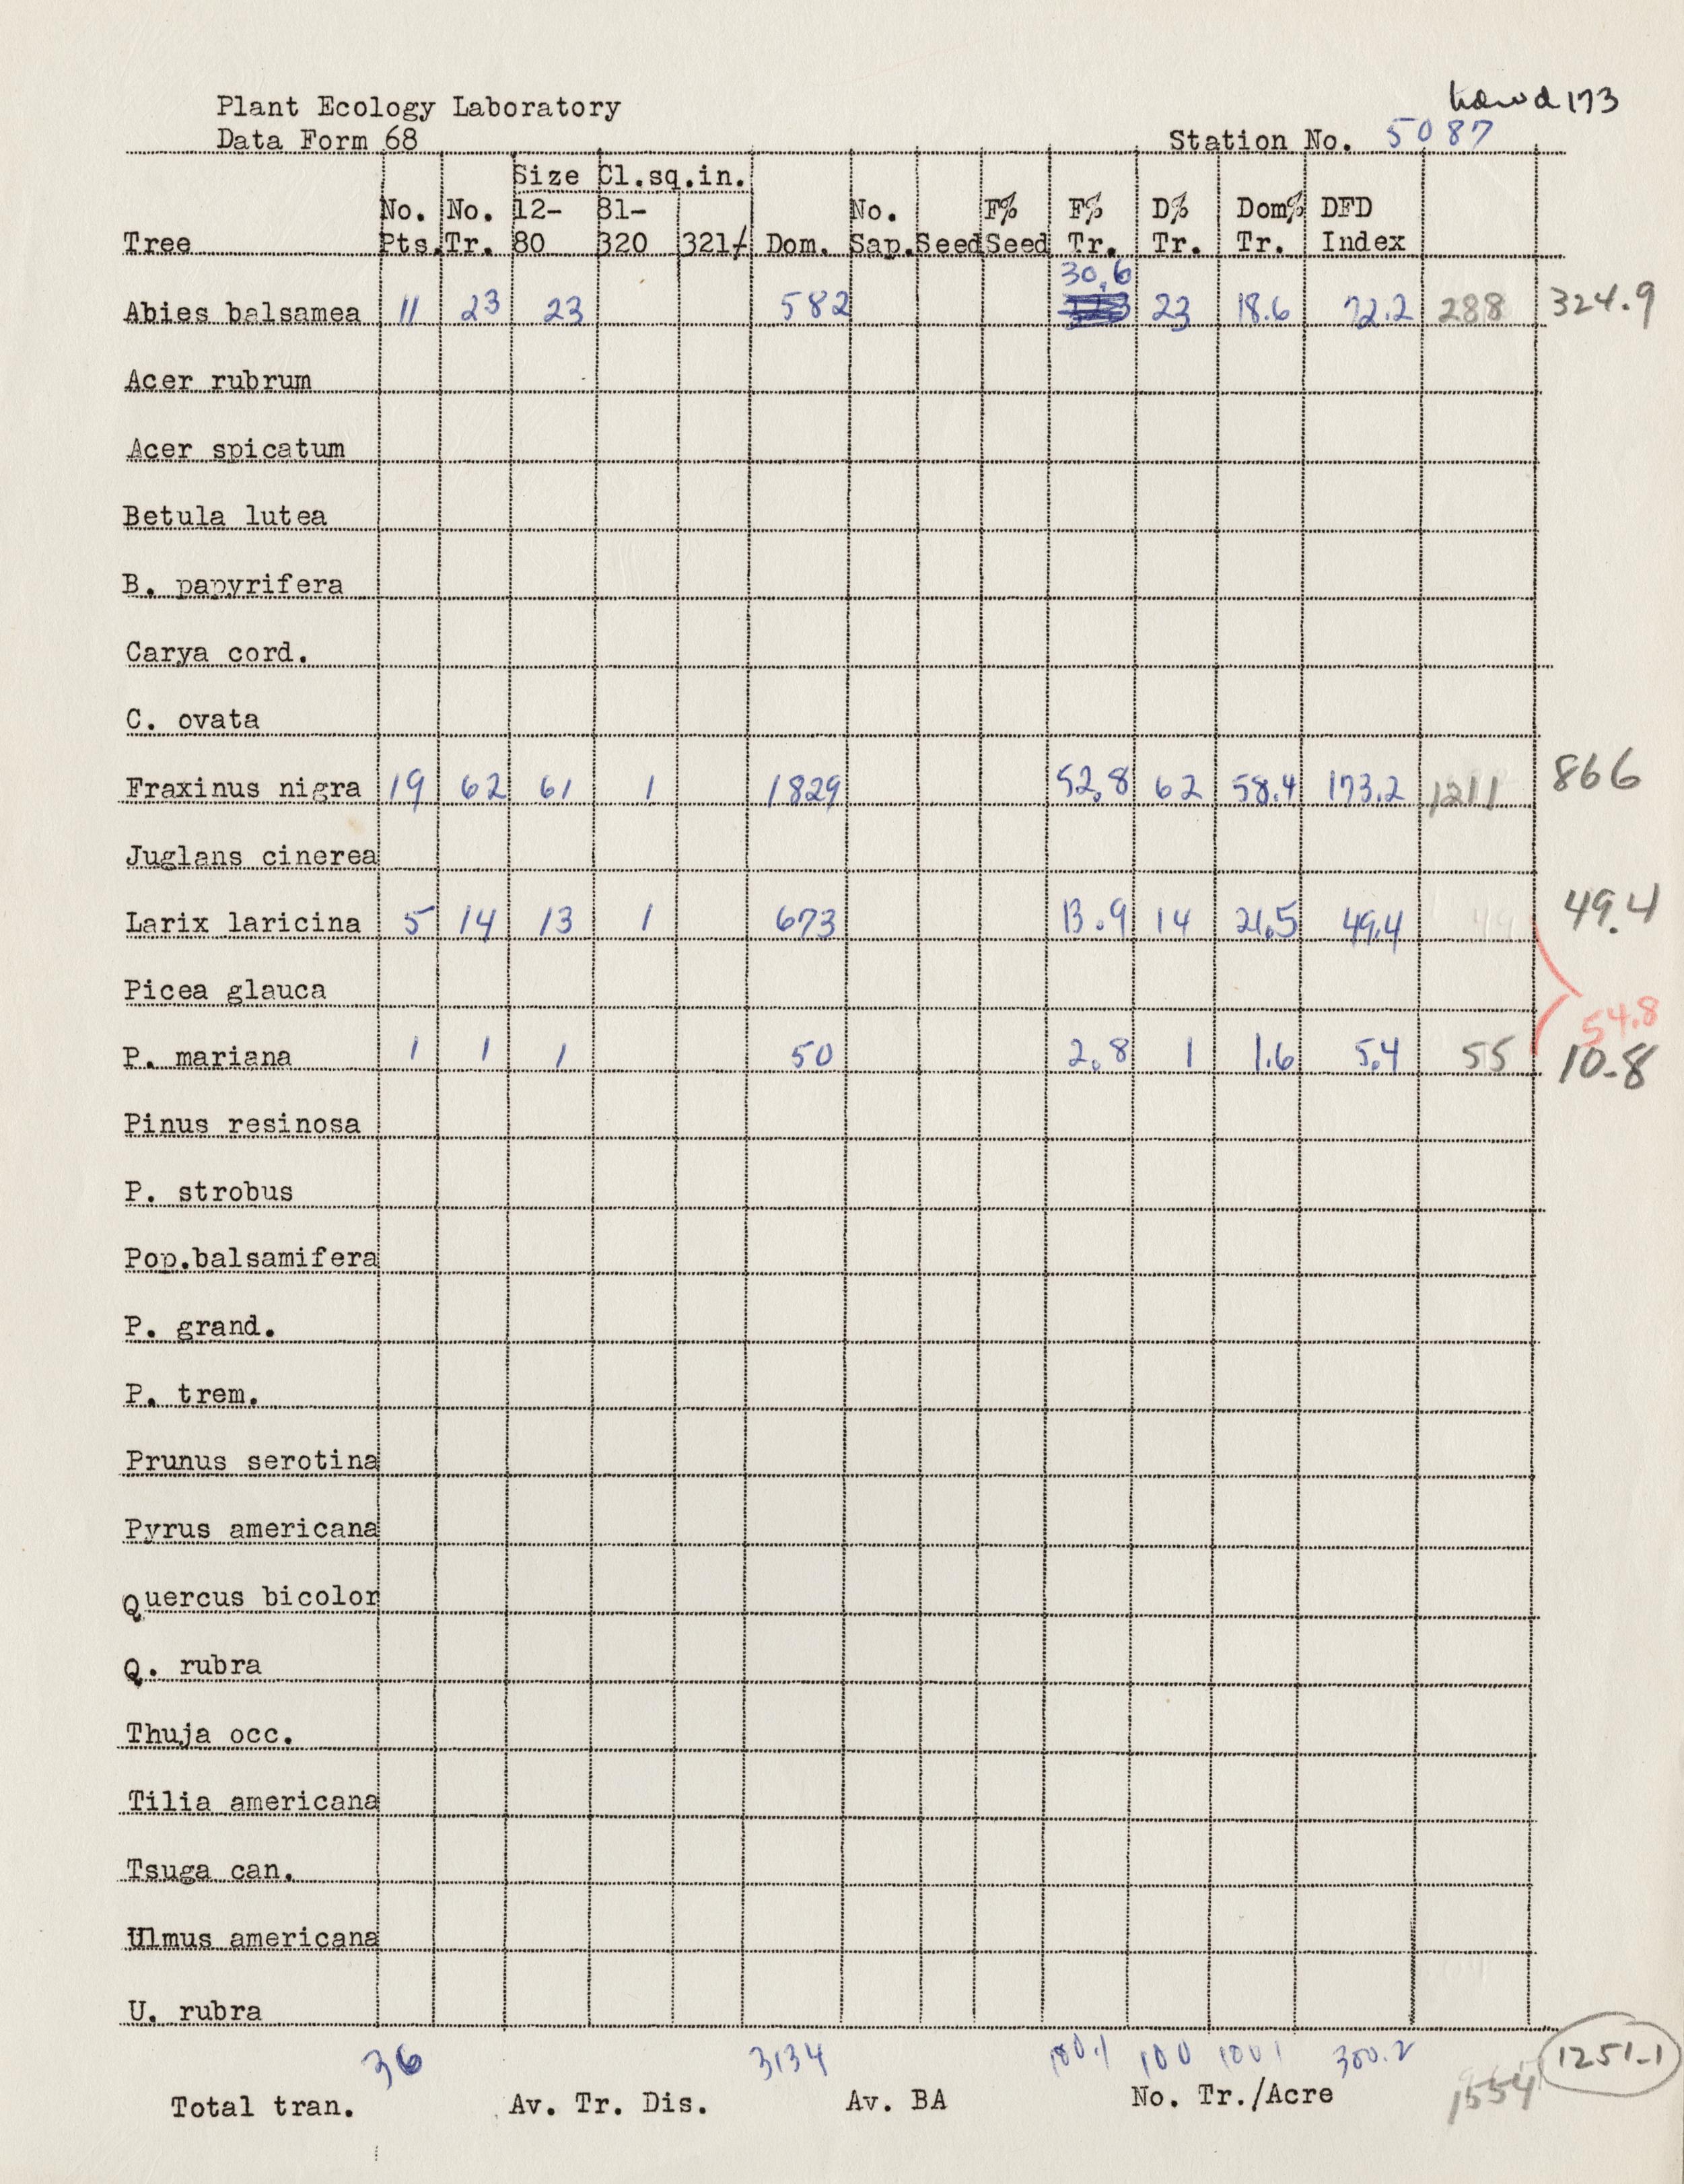 hdwd 173
Plant Ecology Laboratory
Data Form 68
Station No. 5087
Size Cl.sq.in.
No. No. 12- 81- No. F% F% D% Dom% DFD
Tree Pts. Tr. 80 320 321/ Dom. Sap. Seed Seed Tr. Tr. Tr. Index
30.6
Abies balsamea 11 23 23 582 23 18.6 72.2 288 324.9
Acer rubrum
Acer spicatum
Betula lutea
B. papyrifera
Carya cord.
C. ovata
Fraxinus nigra 19 62 61 1 1829 52.8 62 58.4 173.2 1211 866
Juglans cinerea
Larix laricina 5 14 13 1 673 13.9 14 21.5 49.4 49 49.4
Picea glauca
54.8
P. mariana 1 1 1 50 2.8 1 1.6 5.4 55 10.8
Pinus resinosa
P. strobus
Pop.balsamifera
P. grand.
P. trem.
Prunus serotina
Pyrus americana
Quercus bicolor
Q. rubra
Thuja occ.
Tilia americana
Tsuga can.
Ulmus americana
U. rubra
36 3134 100.1 100 100.1 300.2 1554 1251.1
Total tran. Av. Tr. Dis. Av. BA No. Tr./Acre